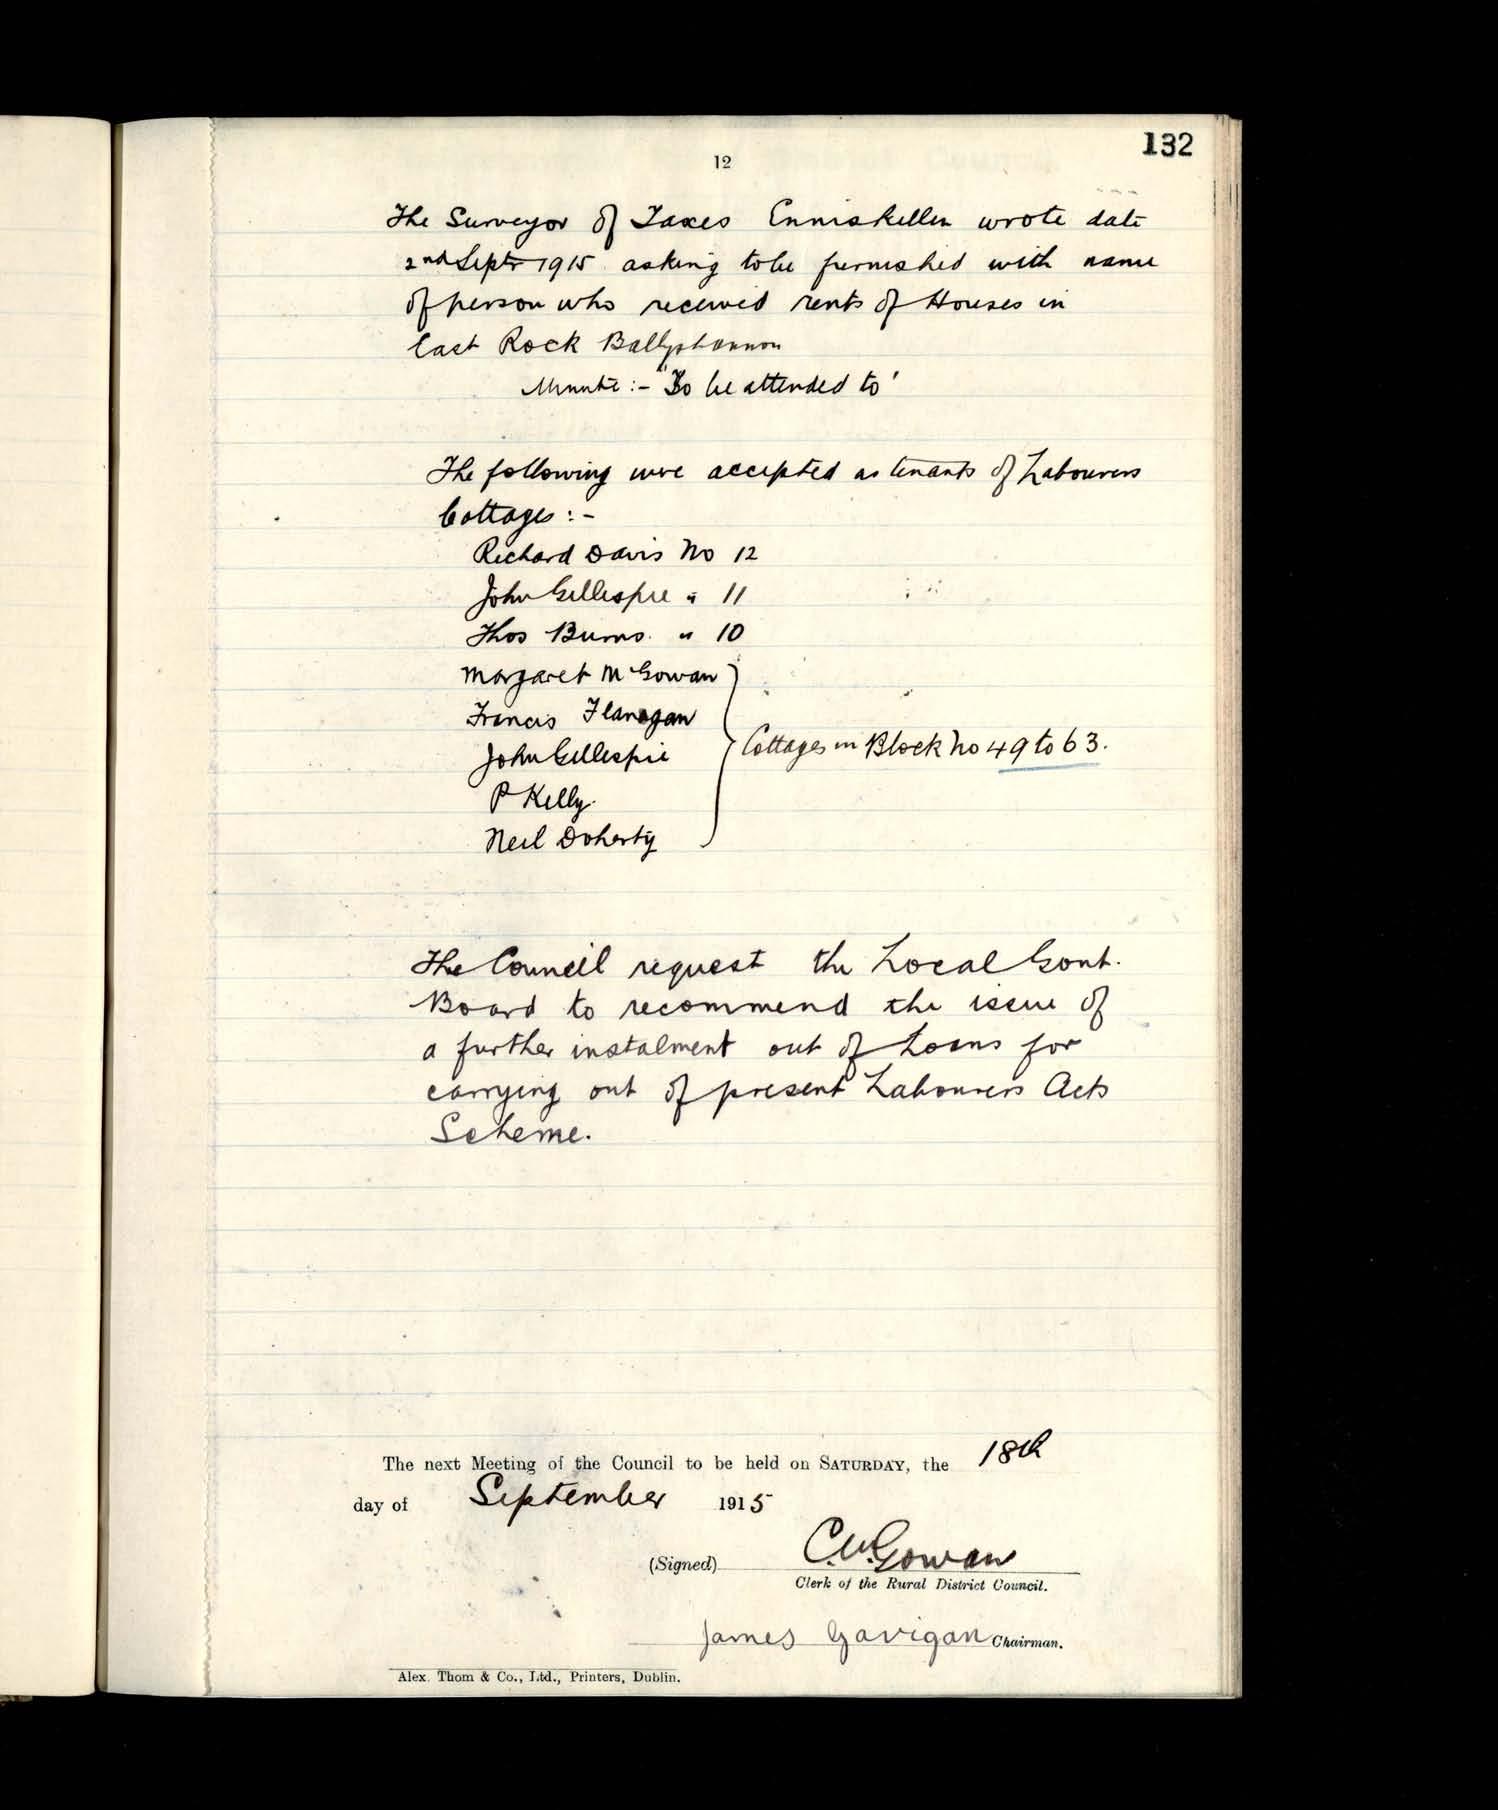 132
12
The Surveyor of Taxes Enniskillen wrote date
2nd Septr 1915 asking to be furnished with name
of person who received rents of Houses in
East Rock Ballyshannon
Minute :- "To be attended to"
The following were accepted as tenants of Labourers
Cottages :-
Richard Davis No 12
John Gillespie " 11
Thos Burns. " 10
Margaret McGowan
Francis Flanagan
John Gillespie
P Kelly.
Neil Doherty
Cottages in Block No 49 to 63.
The Council request the Local Govt.
Board to recommend the issue of
a further instalment out of Loans for
carrying out of present Labourers Acts
Scheme.
The next Meeting of the Council to be held on SATURDAY, the 18th
day of September 1915
(Signed) C. McGowan
Clerk of the Rural District Council.
James Gavigan Chairman.
Alex. Thom & Co., Ltd., Printers, Dublin.